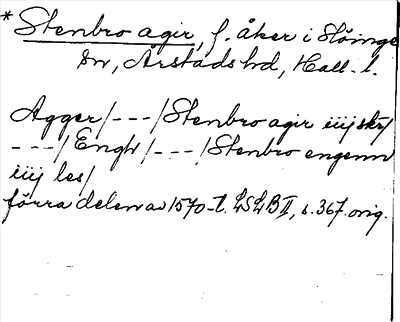 * Stenbro agir, f. åker i Slöinge
sn, Årstads hd, Hall. l.
Agger /---/ Stenbro agir iiij skr/
---/ Engh /---/ Stenbro engenn
iiij les/
förra delen av 1570-t. LSLB II, s. 367. orig.